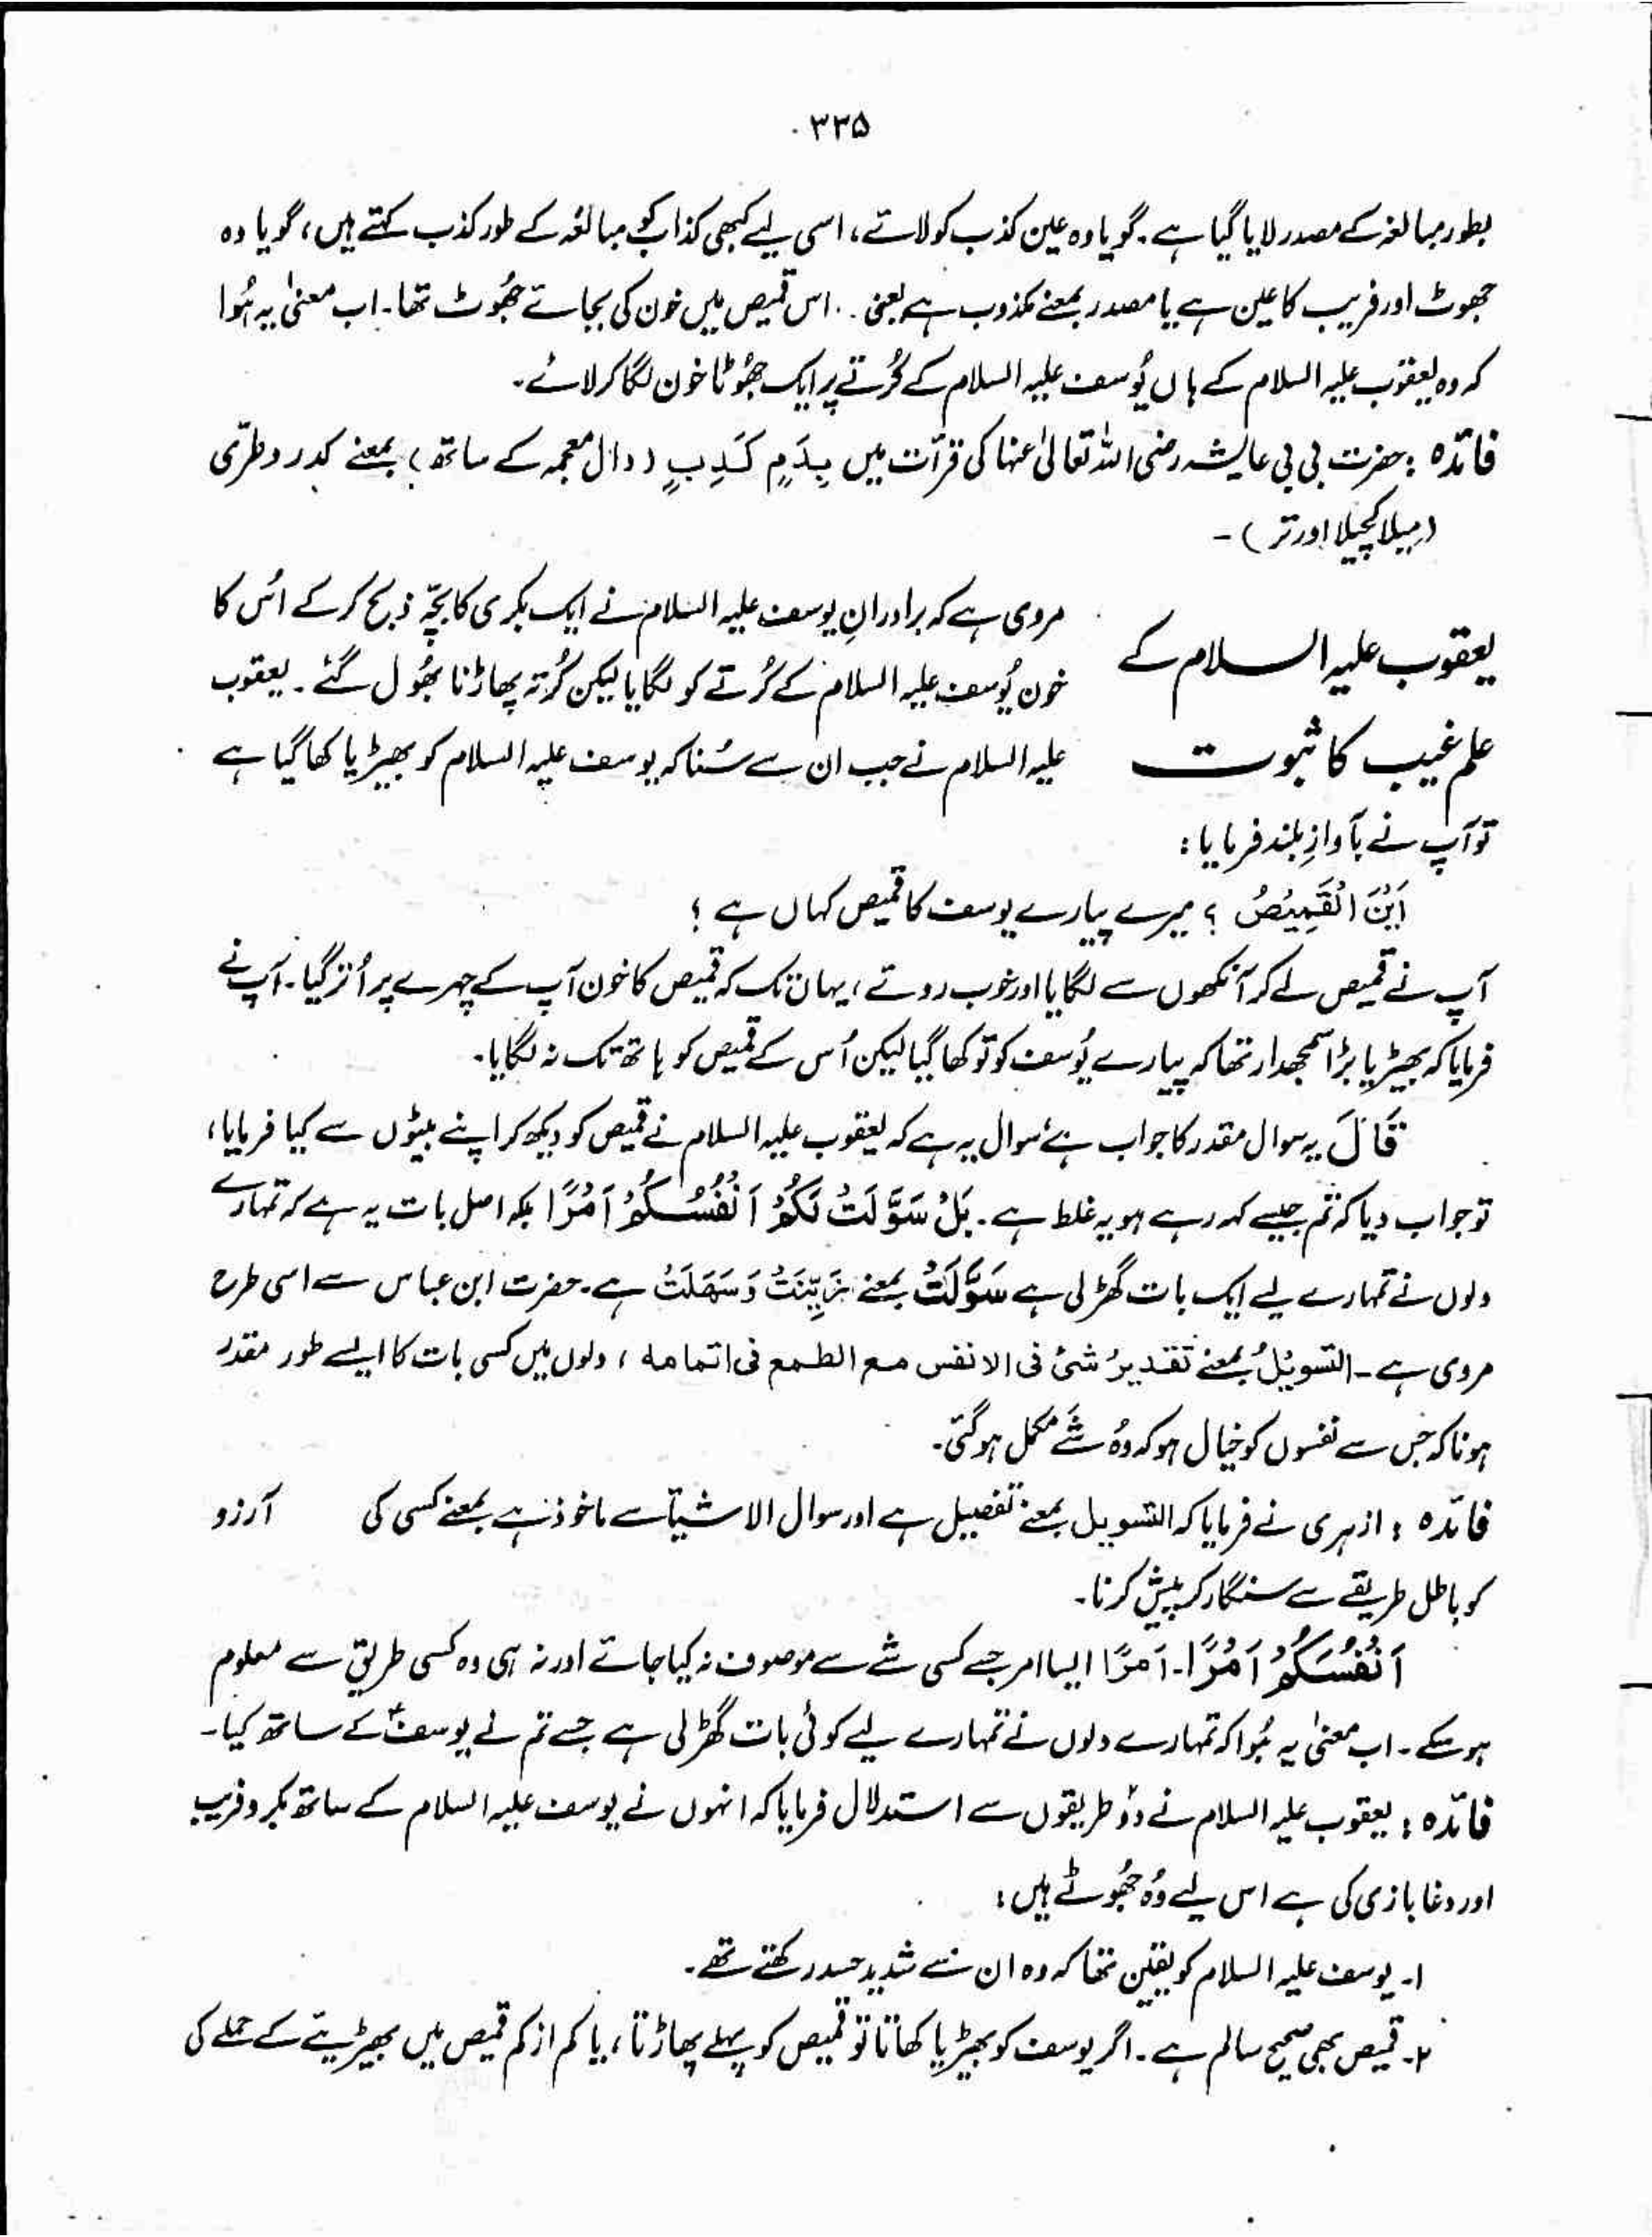 ۳۳۵
بطور مبالغہ کے مصدر لایا گیا ہے۔ گویا وہ عین کذب کو لائے، اسی لیے کبھی کذاب کو مبالغہ کے طور کذب کہتے ہیں، گویا وہ
جھوٹ اور فریب کا عین ہے یا مصدر بمعنے مکذوب ہے یعنی .. اس قمیص میں خون کی بجائے جھُوٹ تھا۔ اب معنیٰ یہ ہُوا
کہ وہ یعقوب علیہ السلام کے ہاں یُوسف علیہ السلام کے کُرتے پر ایک جھُوٹا خون لگا کر لائے۔
فائدہ : حضرت بی بی عایشہ رضی اللہ تعالیٰ عنہا کی قرأت میں بِدَمٍ کَدِبٍ (دال معجمہ کے ساتھ) بمعنے کدر و طرّی
(میلا کچیلا اور تر) -
یعقوب علیہ السلام کے
علم غیب کا ثبوت
مروی ہے کہ برادرانِ یوسف علیہ السلام نے ایک بکری کا بچّہ ذبح کر کے اُس کا
خون یُوسف علیہ السلام کے کُرتے کو لگایا لیکن کُرتہ پھاڑنا بھُول گئے۔ یعقوب
علیہ السلام نے جب ان سے سُنا کہ یوسف علیہ السلام کو بھیڑیا کھا گیا ہے
تو آپ نے بآوازِ بلند فرمایا :
اَیْنَ الْقَمِیْصُ ؟ میرے پیارے یوسف کا قمیص کہاں ہے ؟
آپ نے قمیص لے کر آنکھوں سے لگایا اور خوب روئے، یہاں تک کہ قمیص کا خون آپ کے چہرے پر اُتر گیا۔ آپ نے
فرمایا کہ بھیڑیا بڑا سمجھدار تھا کہ پیارے یُوسف کو تو کھا گیا لیکن اُس کے قمیص کو ہاتھ تک نہ لگایا۔
قَالَ یہ سوال مقدر کا جواب ہے سوال یہ ہے کہ یعقوب علیہ السلام نے قمیص کو دیکھ کر اپنے بیٹوں سے کیا فرمایا،
تو جواب دیا کہ تم جیسے کہہ رہے ہو یہ غلط ہے۔ بَلْ سَوَّلَتْ لَکُمْ اَنْفُسُکُمْ اَمْرًا بلکہ اصل بات یہ ہے کہ تمہارے
دلوں نے تمہارے لیے ایک بات گھڑ لی ہے سَوَّلَتْ بمعنے زَیِّنَتْ وَسَھَلَتْ ہے۔ حضرت ابن عباس سے اسی طرح
مروی ہے ۔ التسویلُ بمعنے تقدیرُ شیٔ فی الانفس مع الطمع فی اتمامه ، دلوں میں کسی بات کا ایسے طور مقدر
ہونا کہ جس سے نفسوں کو خیال ہو کہ وہُ شَے مکمل ہو گئی۔
فائدہ : ازہری نے فرمایا کہ التسویل بمعنے تفصیل ہے اور سوال الاشیأ سے ماخوذ ہے بمعنے کسی کی آرزو
کو باطل طریقے سے سنگار کر پیش کرنا۔
اَنْفُسُکُمْ اَمْرًا۔ اَمْرًا ایسا امر جسے کسی شے سے موصوف نہ کیا جائے اور نہ ہی وہ کسی طریق سے معلوم
ہو سکے۔ اب معنیٰ یہ ہُوا کہ تمہارے دلوں نے تمہارے لیے کوئی بات گھڑ لی ہے جسے تم نے یوسفؑ کے ساتھ کیا۔
فائدہ : یعقوب علیہ السلام نے دو طریقوں سے استدلال فرمایا کہ انہوں نے یوسف علیہ السلام کے ساتھ مکر و فریب
اور دغا بازی کی ہے اس لیے وُہ جھُوٹے ہیں :
۱۔ یوسف علیہ السلام کو یقین تھا کہ وہ ان سے شدید حسد رکھتے تھے۔
۲۔ قمیص بھی صحیح سالم ہے۔ اگر یوسف کو بھیڑیا کھاتا تو قمیص کو پہلے پھاڑتا، یا کم از کم قمیص میں بھیڑیئے کے حملے کی